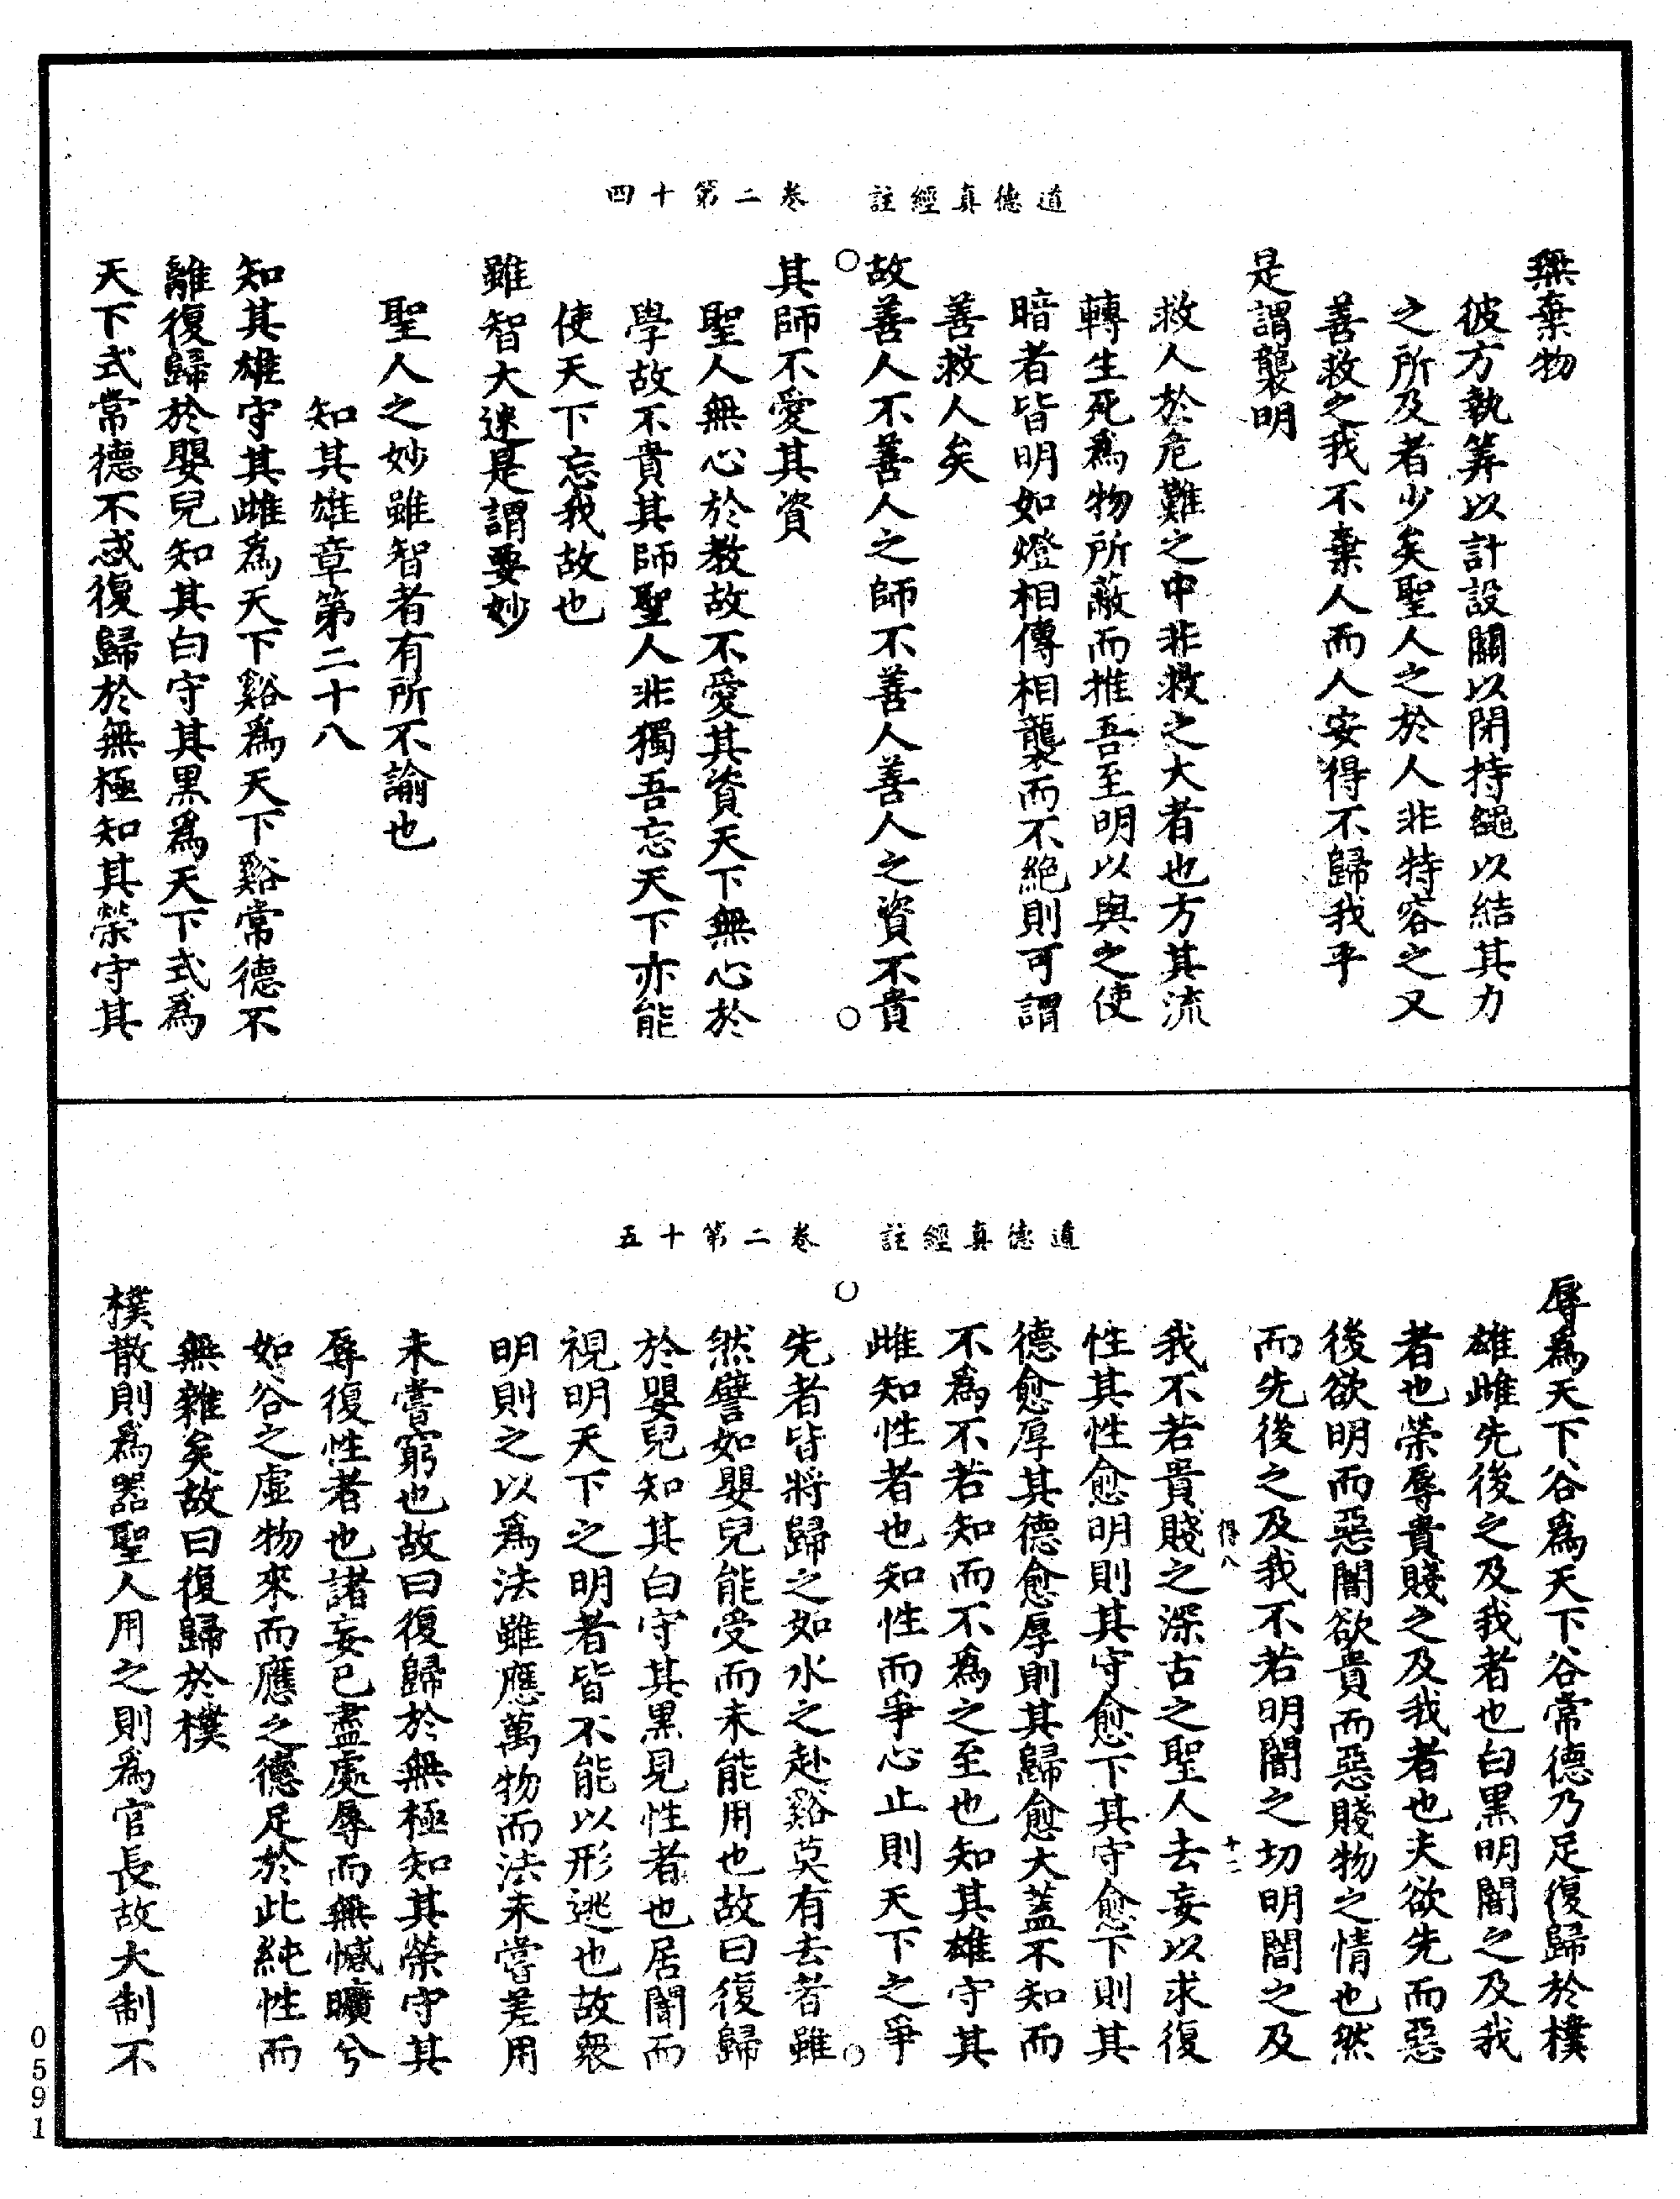 道德真經註　卷二第十四
無棄物
彼方執筭以計設關以閉持繩以結其力
之所及者少矣聖人之於人非特容之又
善救之我不棄人而人安得不歸我乎
是謂襲明
救人於危難之中非救之大者也方其流
轉生死爲物所蔽而推吾至明以與之使
暗者皆明如燈相傳相襲而不絶則可謂
善救人矣
故善人不善人之師不善人善人之資不貴
其師不愛其資
聖人無心於教故不愛其資天下無心於
學故不貴其師聖人非獨吾忘天下亦能
使天下忘我故也
雖智大迷是謂要妙
聖人之妙雖智者有所不諭也
知其雄章第二十八
知其雄守其雌爲天下谿爲天下谿常德不
離復歸於嬰兒知其白守其黑爲天下式爲
天下式常德不忒復歸於無極知其榮守其
道德真經註　卷二第十五
辱爲天下谷爲天下谷常德乃足復歸於樸
雄雌先後之及我者也白黑明闇之及我
者也榮辱貴賤之及我者也夫欲先而惡
後欲明而惡闇欲貴而惡賤物之情也然
而先後之及我不若明闇之切明闇之及
得八　十二
我不若貴賤之深古之聖人去妄以求復
性其性愈明則其守愈下其守愈下則其
德愈厚其德愈厚則其歸愈大蓋不知而
不爲不若知而不爲之至也知其雄守其
雌知性者也知性而爭心止則天下之爭
先者皆將歸之如水之赴谿莫有去者雖
然譬如嬰兒能受而未能用也故曰復歸
於嬰兒知其白守其黑見性者也居闇而
視明天下之明者皆不能以形逃也故衆
明則之以爲法雖應萬物而法未嘗差用
未嘗窮也故曰復歸於無極知其榮守其
辱復性者也諸妄已盡處辱而無憾曠兮
如谷之虛物來而應之德足於此純性而
無雜矣故曰復歸於樸
樸散則爲器聖人用之則爲官長故大制不
0591